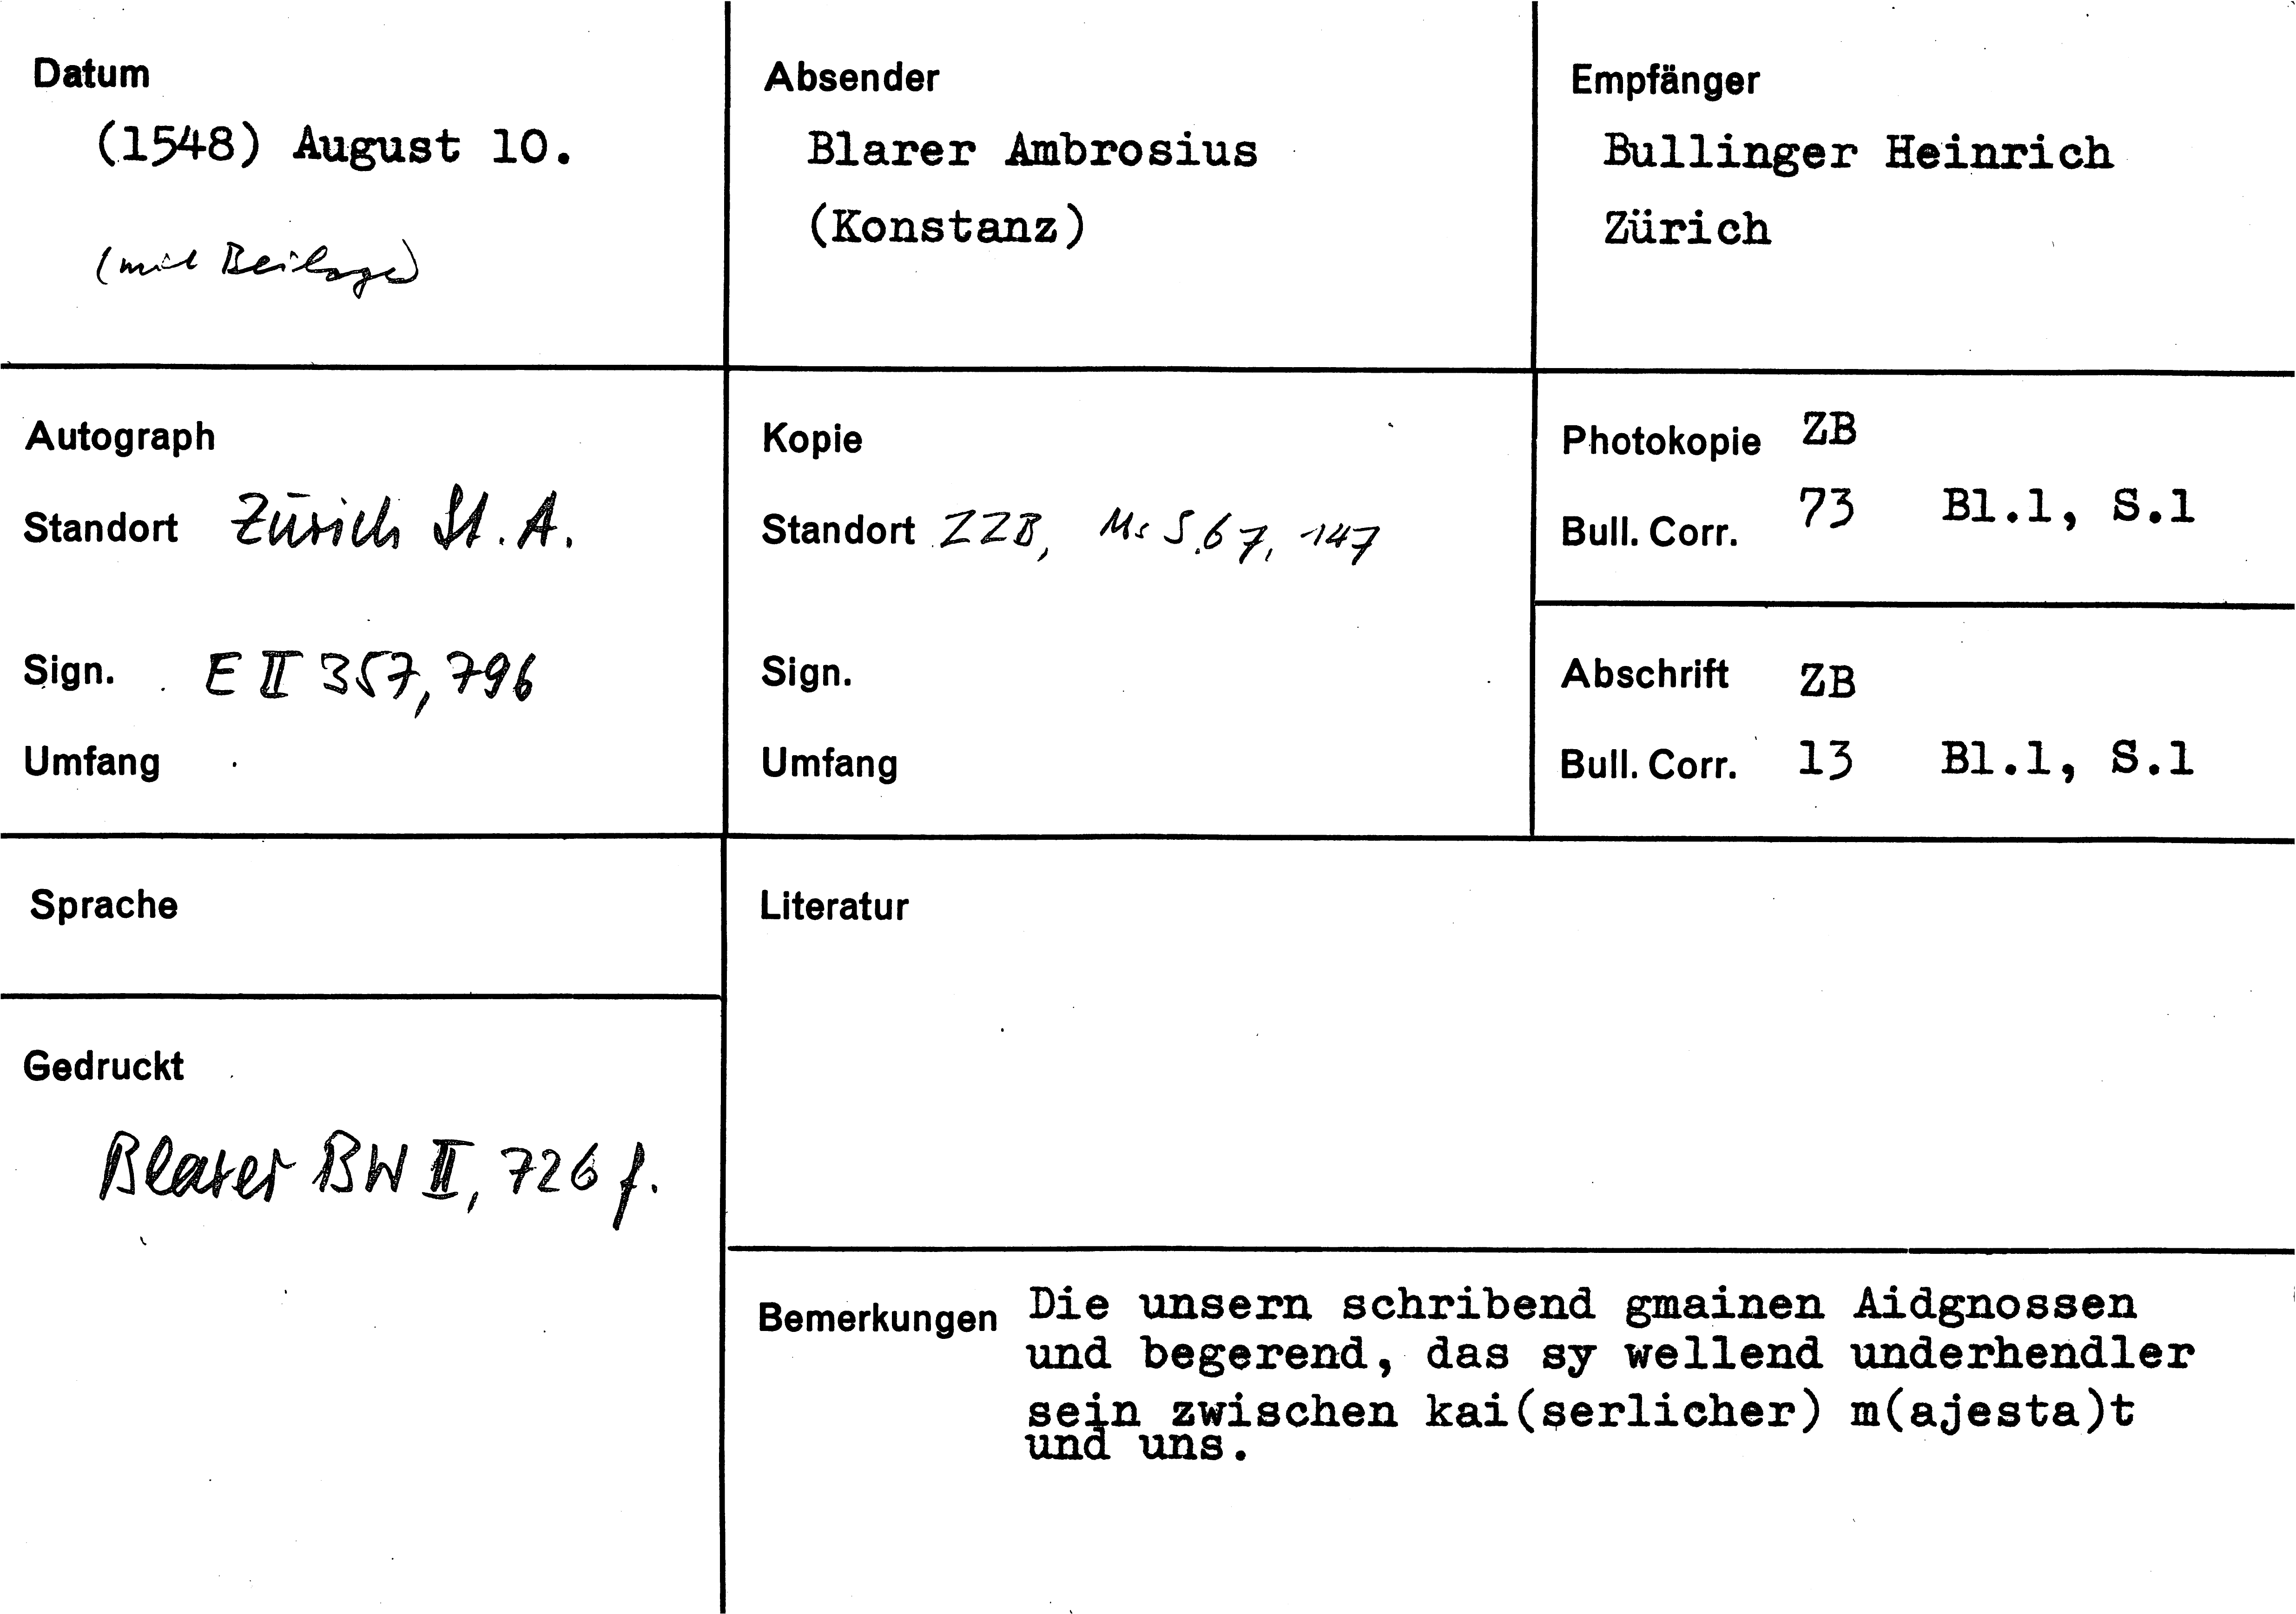 Datum
(1548) August 10.
(mit Beilage)
Absender
Blarer Ambrosius
(Konstanz)
Empfänger
Bullinger Heinrich
Zürich
Autograph
Standort Zürich St. A.
Sign. E II 357, 796
Umfang
Kopie
Standort ZZB, Ms S.67, 147
Sign.
Umfang
Photokopie ZB
Bull. Corr. 73 Bl.1, S.1
Abschrift ZB
Bull. Corr. 13 Bl.1, S.1
Sprache
Gedruckt
Blarer BW II, 726 f.
Literatur
Bemerkungen Die unsern schribend gmainen Aidgnossen
und begerend, das sy wellend underhendler
sein zwischen kai(serlicher) m(ajesta)t
und uns.